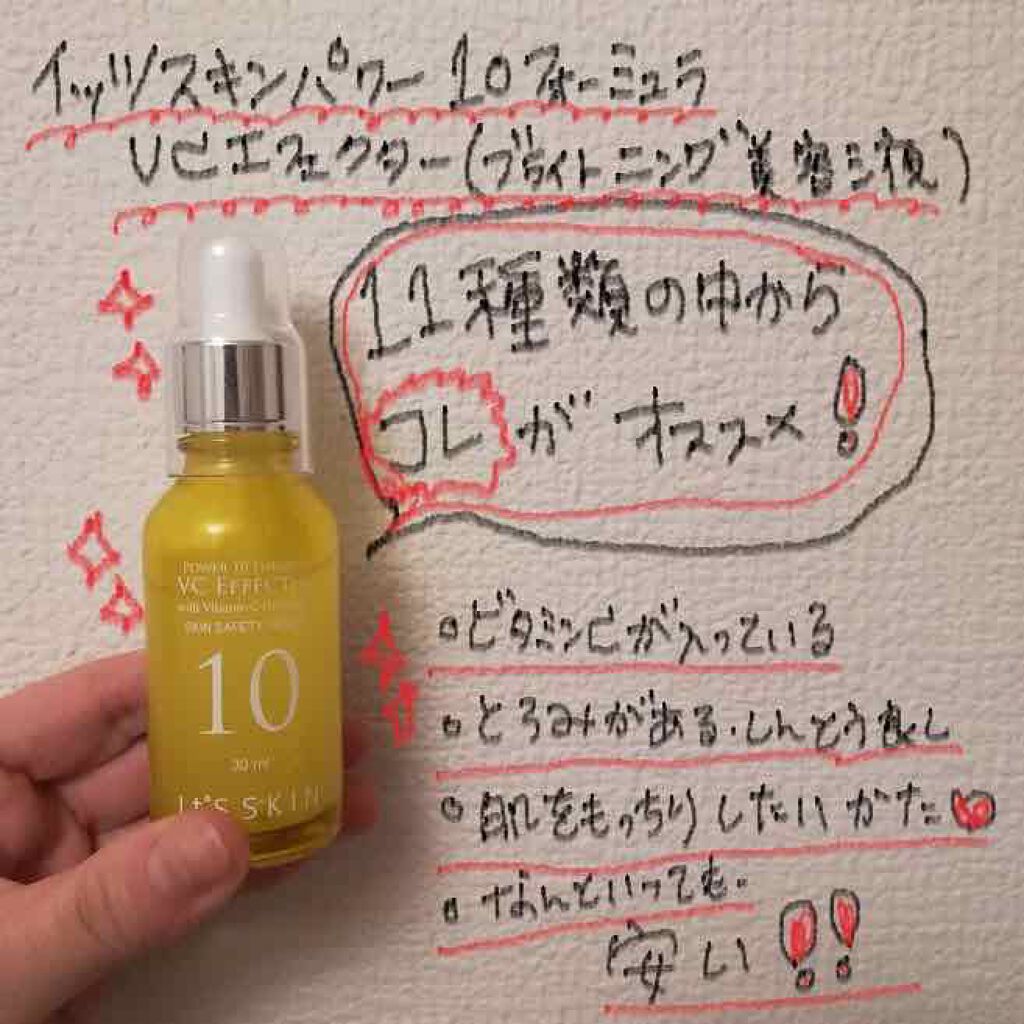 イッツスキンパワー10フォーミュラ
VCエフェクター(ブライトニング美容液)
11種類の中から
コレがオススメ!
POWER 10
VC EFFECT
with Vitamin C
SKIN SAFETY
10
30 ml
It's SKIN
ビタミンCが入っている
とろみがある.しんとう良し
肌をもっちりしたいかた
なんといっても.
安い!!